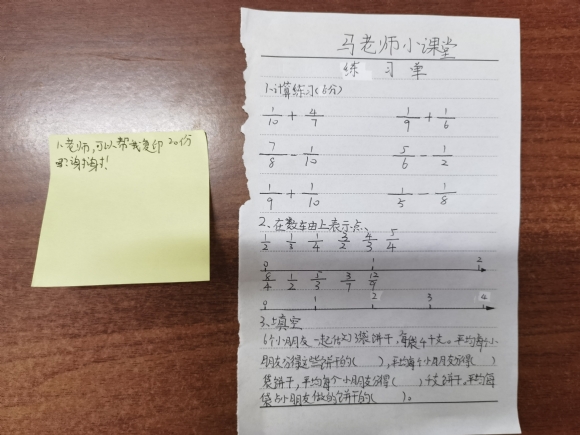 老师,可以帮我复印20份
吗?谢谢!
马老师小课堂
练 习 单
1、计算练习(6分)
1/10 + 4/7 1/9 + 1/6
7/8 - 1/10 5/6 - 1/2
1/9 + 1/10 1/5 - 1/8
2、在数车由上表示点、
1/2 1/3 1/4 3/2 4/3 5/4
0 1 2
8/4 1/2 5/3 3/7 12/9
0 1 2 3 4
3、填空
6个小朋友一起做了3袋饼干,每袋4千克。平均每个小
朋友分得这些饼干的( ),平均每个小朋友分得( )
袋饼干,平均每个小朋友分得( )千克饼干。平均每
袋占小朋友做的饼干的( )。